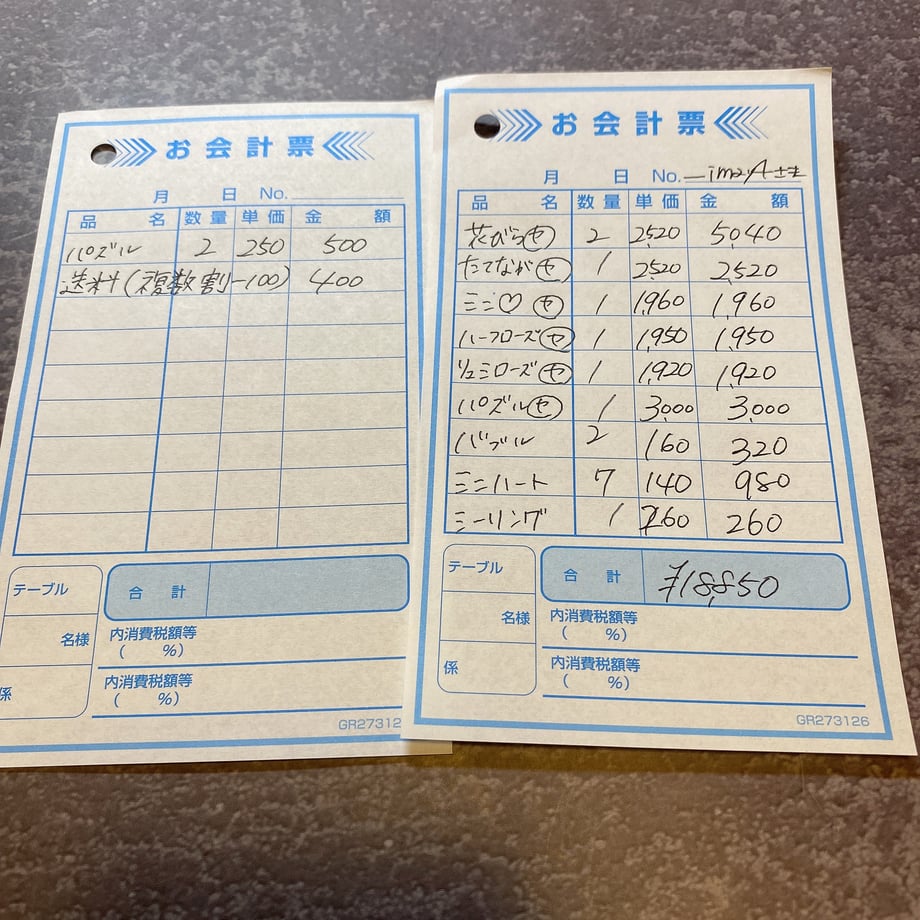 お会計票
月 日 No.
品名 数量 単価 金額
パズル 2 250 500
送料(複数割-100) 400
テーブル
合計
名様
内消費税額等
( %)
係
内消費税額等
( %)
GR27312
お会計票
月 日 No.
品名 数量 単価 金額
花びらセ 2 2520 5,040
たてながセ 1 2520 2,520
ミニ♡セ 1 1,960 1,960
ハーフローズセ 1 1,950 1,950
リュミローズセ 1 1,920 1,920
パズルセ 1 3,000 3,000
バブル 2 160 320
ミニハート 7 140 980
シーリング 1 260 260
テーブル
合計 ¥18,850
名様
内消費税額等
( %)
係
内消費税額等
( %)
GR273126